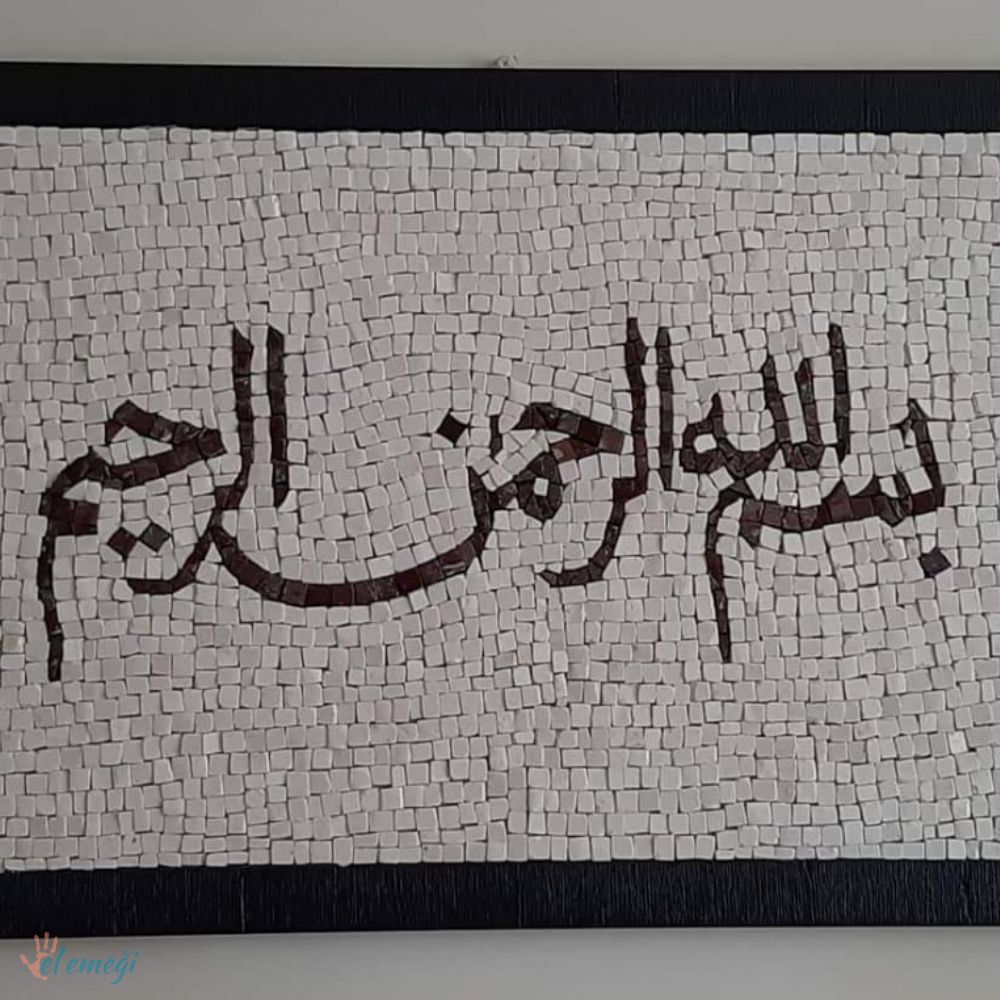 بسم الله الرحمن الرحيم
el emeği